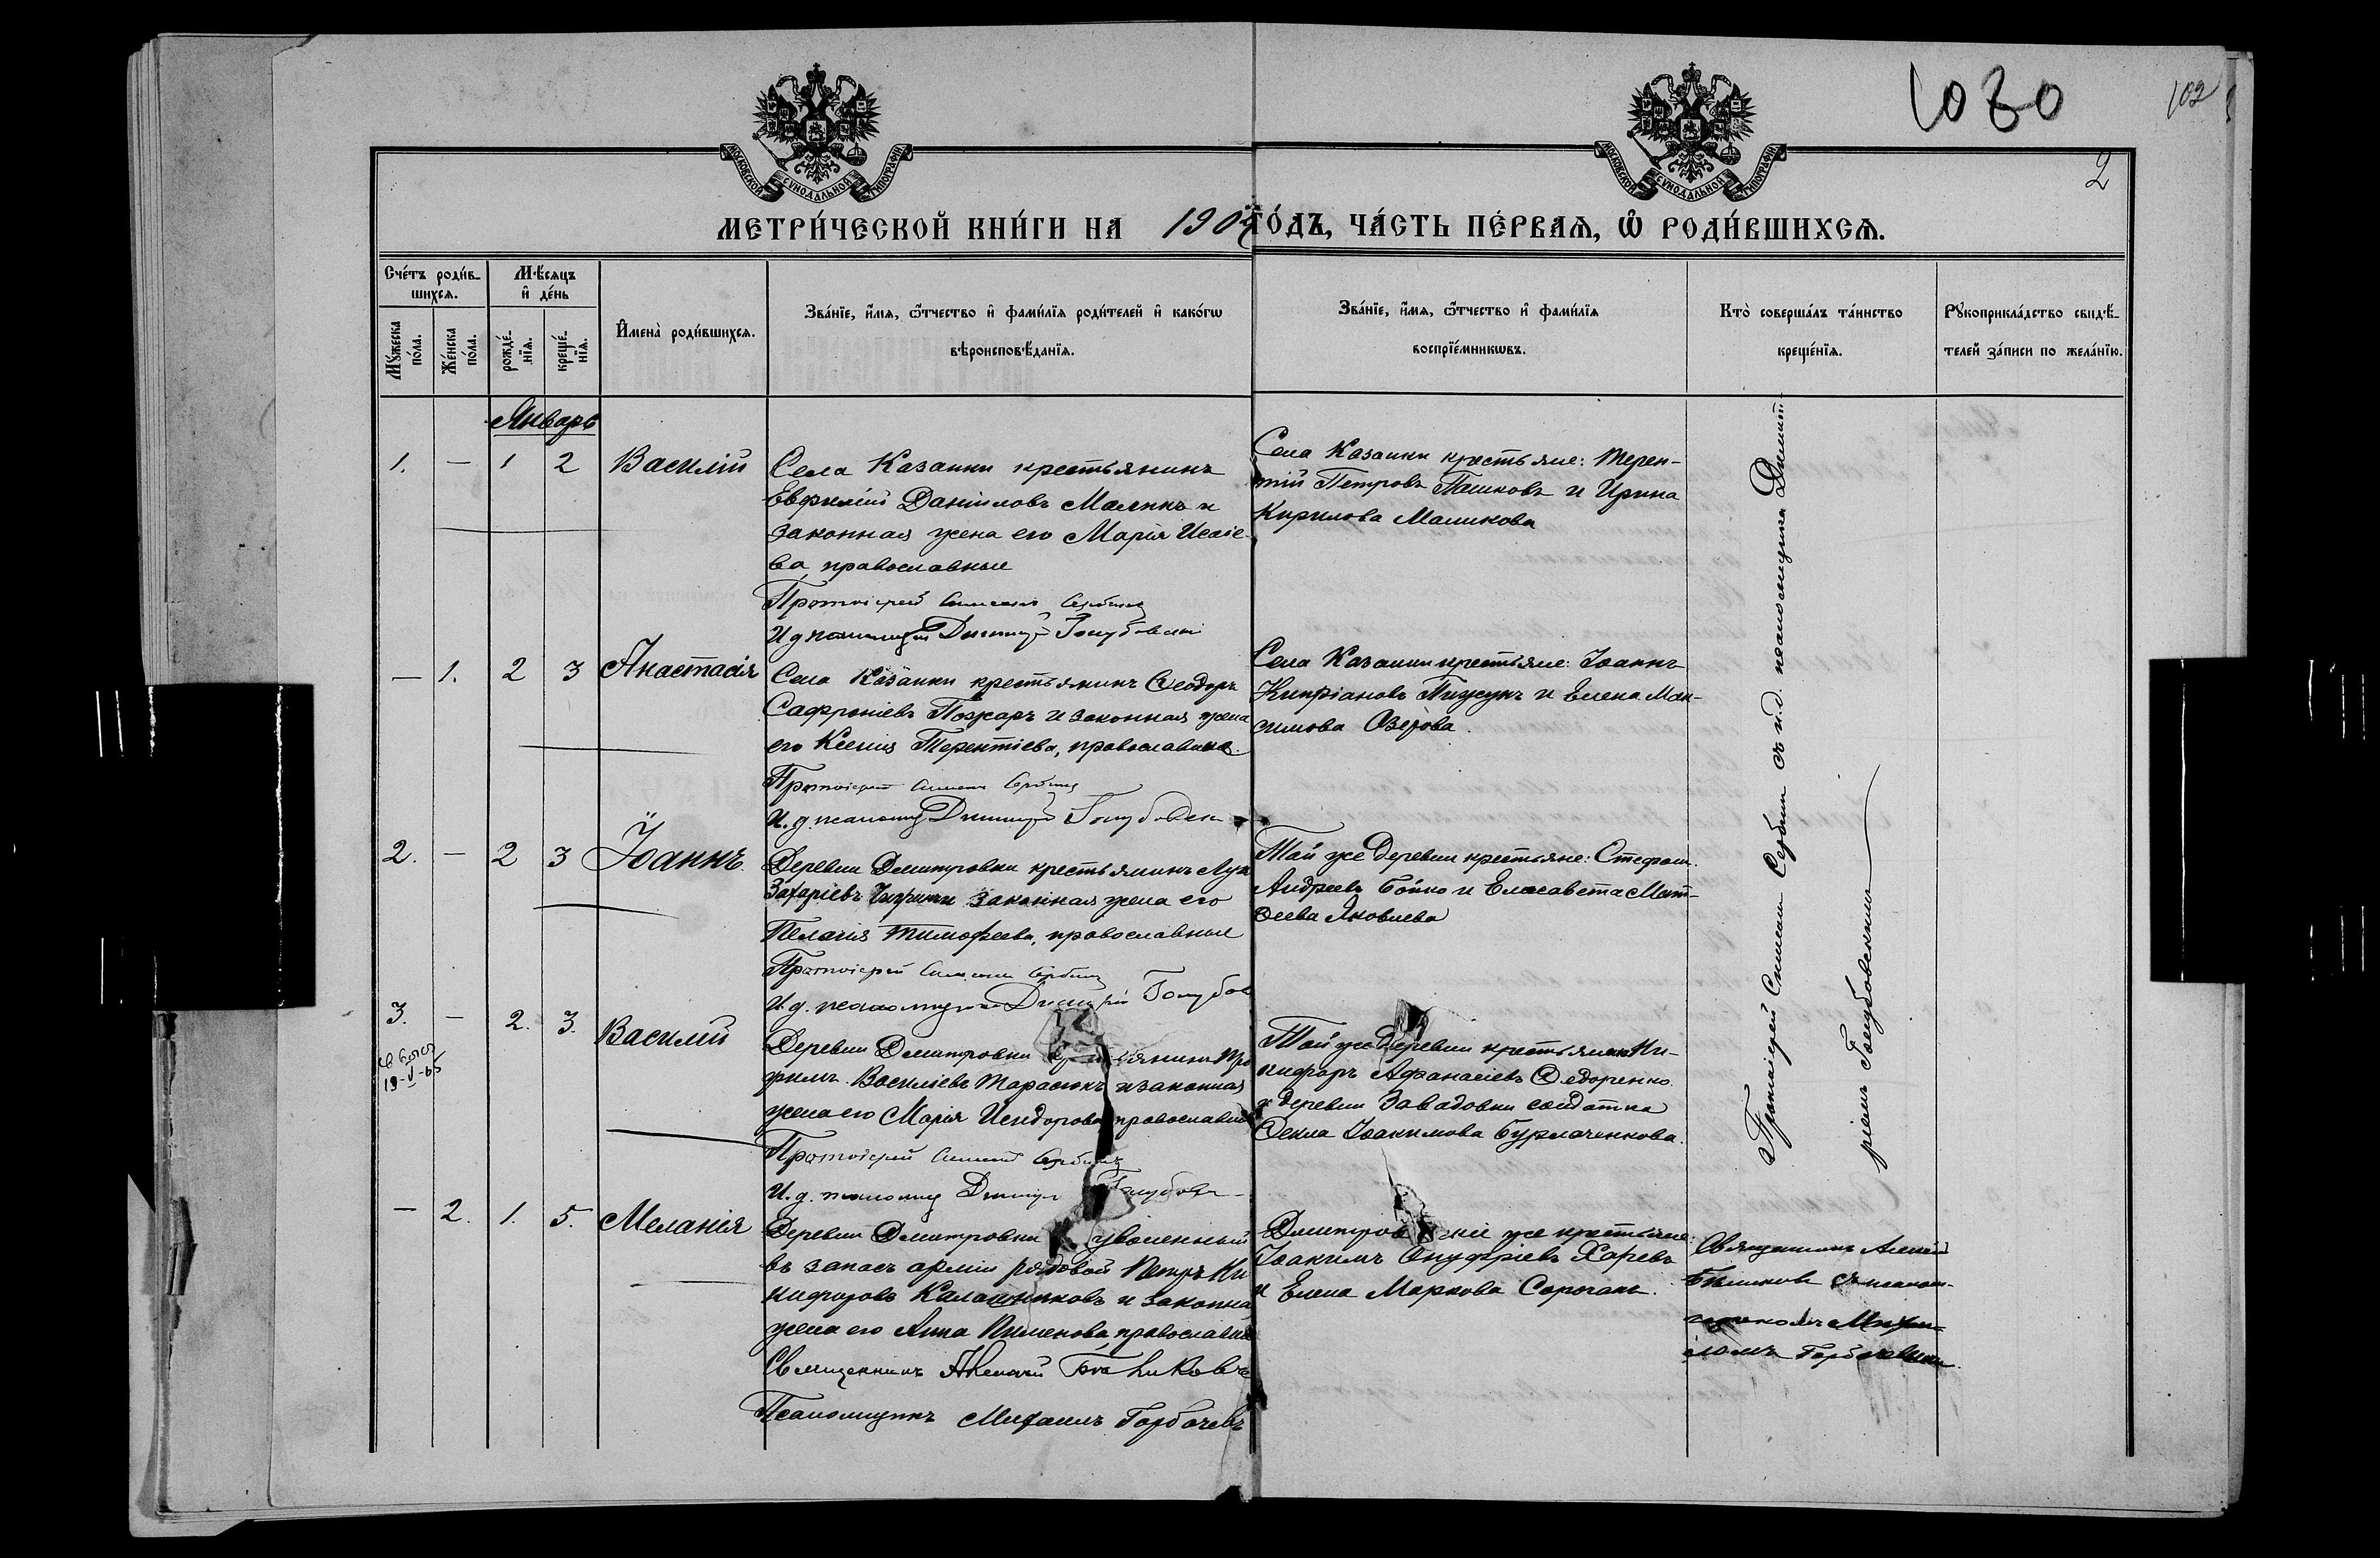 1030
102
2
МОСКОВСКОЙ СѴНОДАЛЬНОЙ ТИПОГРАФІИ
МОСКОВСКОЙ СѴНОДАЛЬНОЙ ТИПОГРАФІИ
МЕТРИ́ЧЕСКОЙ КНИ́ГИ НА 190
ГО́ДЪ, ЧА́СТЬ ПЕ́РВАѦ, Ѡ҆ РОДИ́ВШИХСѦ.
Сче́тъ роди́в-
шихсѧ.
Мꙋ́жеска по́ла.
Же́нска по́ла.
Мѣ́сѧцъ
и҆ де́нь
рожде́-нїѧ.
креще́-нїѧ.
И҆мена̀ роди́вшихсѧ.
Зва́нїе, и҆́мѧ, ѻ҆́тчество и҆ фами́лїѧ роди́телей и҆ како́гѡ
вѣроисповѣ́данїѧ.
Зва́нїе, и҆́мѧ, ѻ҆́тчество и҆ фами́лїѧ
воспрїе́мникѡвъ.
Кто̀ соверша́лъ та́инство
креще́нїѧ.
Рꙋкоприкла́дство свидѣ́-
телей за́писи по жела́нїю.
Январь
1. — 1 2 Василій
Села Казанки крестьянинъ
Евфимій Даніиловъ Маликъ и
законная жена его Марія Исаіе-
ва, православные
Протоіерей Симеонъ Сербинъ
И д псаломщика Димитрій Голубовскій
Села Казанки крестьяне: Терен-
тій Петровъ Пашковъ и Ирина
Кирилова Маликова
— 1. 2 3 Анастасія
Села Казанки крестьянинъ Ѳеодоръ
Сафроніевъ Пожаръ и законная жена
его Ксенія Терентіева, православные.
Протоіерей Симеонъ Сербинъ
И. д. псаломщ Димитрій Голубовск
Села Казанки крестьяне: Іоаннъ
Кипріановъ и Елена Мак-
симова Озерова.
2. — 2 3 Іоаннъ
Деревни Димитровки крестьянинъ Лука
Захаріевъ законная жена его
Пелагія Тимофеева, православные
Протоіерей Симеонъ Сербинъ
И. д. псаломщика Димитрій Голубов
Той же деревни крестьяне: Стефан.
Андреевъ Бойко и Елисавета Мат-
ѳеева Яковлева
3. — 2. 3. Василій
19-V-65
Деревни Димитровки крестьянинъ Тро
фимъ Василіевъ Тарасюкъ и законная
жена его Марія Исидорова православны
Протоіерей Симеонъ Сербинъ
И. д. псаломщ Димитр Голубов
Той же деревни крестьянинъ Ни-
кифоръ Афанасіевъ Ѳедоренко
и деревни Завадовки солдатка
Ѳекла Іоакимова Бурлаченкова.
— 2. 1. 5. Меланія
Деревни Димитровки уволенный
въ запасъ арміи рядовой Петръ Ни
кифоровъ Калашниковъ и законна
жена его Анна Пименова, православны
Священникъ Алексій
Псаломщикъ Михаилъ Горбачевъ
Димитровскіе же крестьяне:
Іоакимъ Онуфріевъ Харевъ
и Елена Маркова
Протоіерей Симеонъ Сербинъ съ и.д. псаломщика Димит-
ріемъ Голубовскимъ
Священникъ Алексій
съ псалом-
щикомъ Михаи-
ломъ